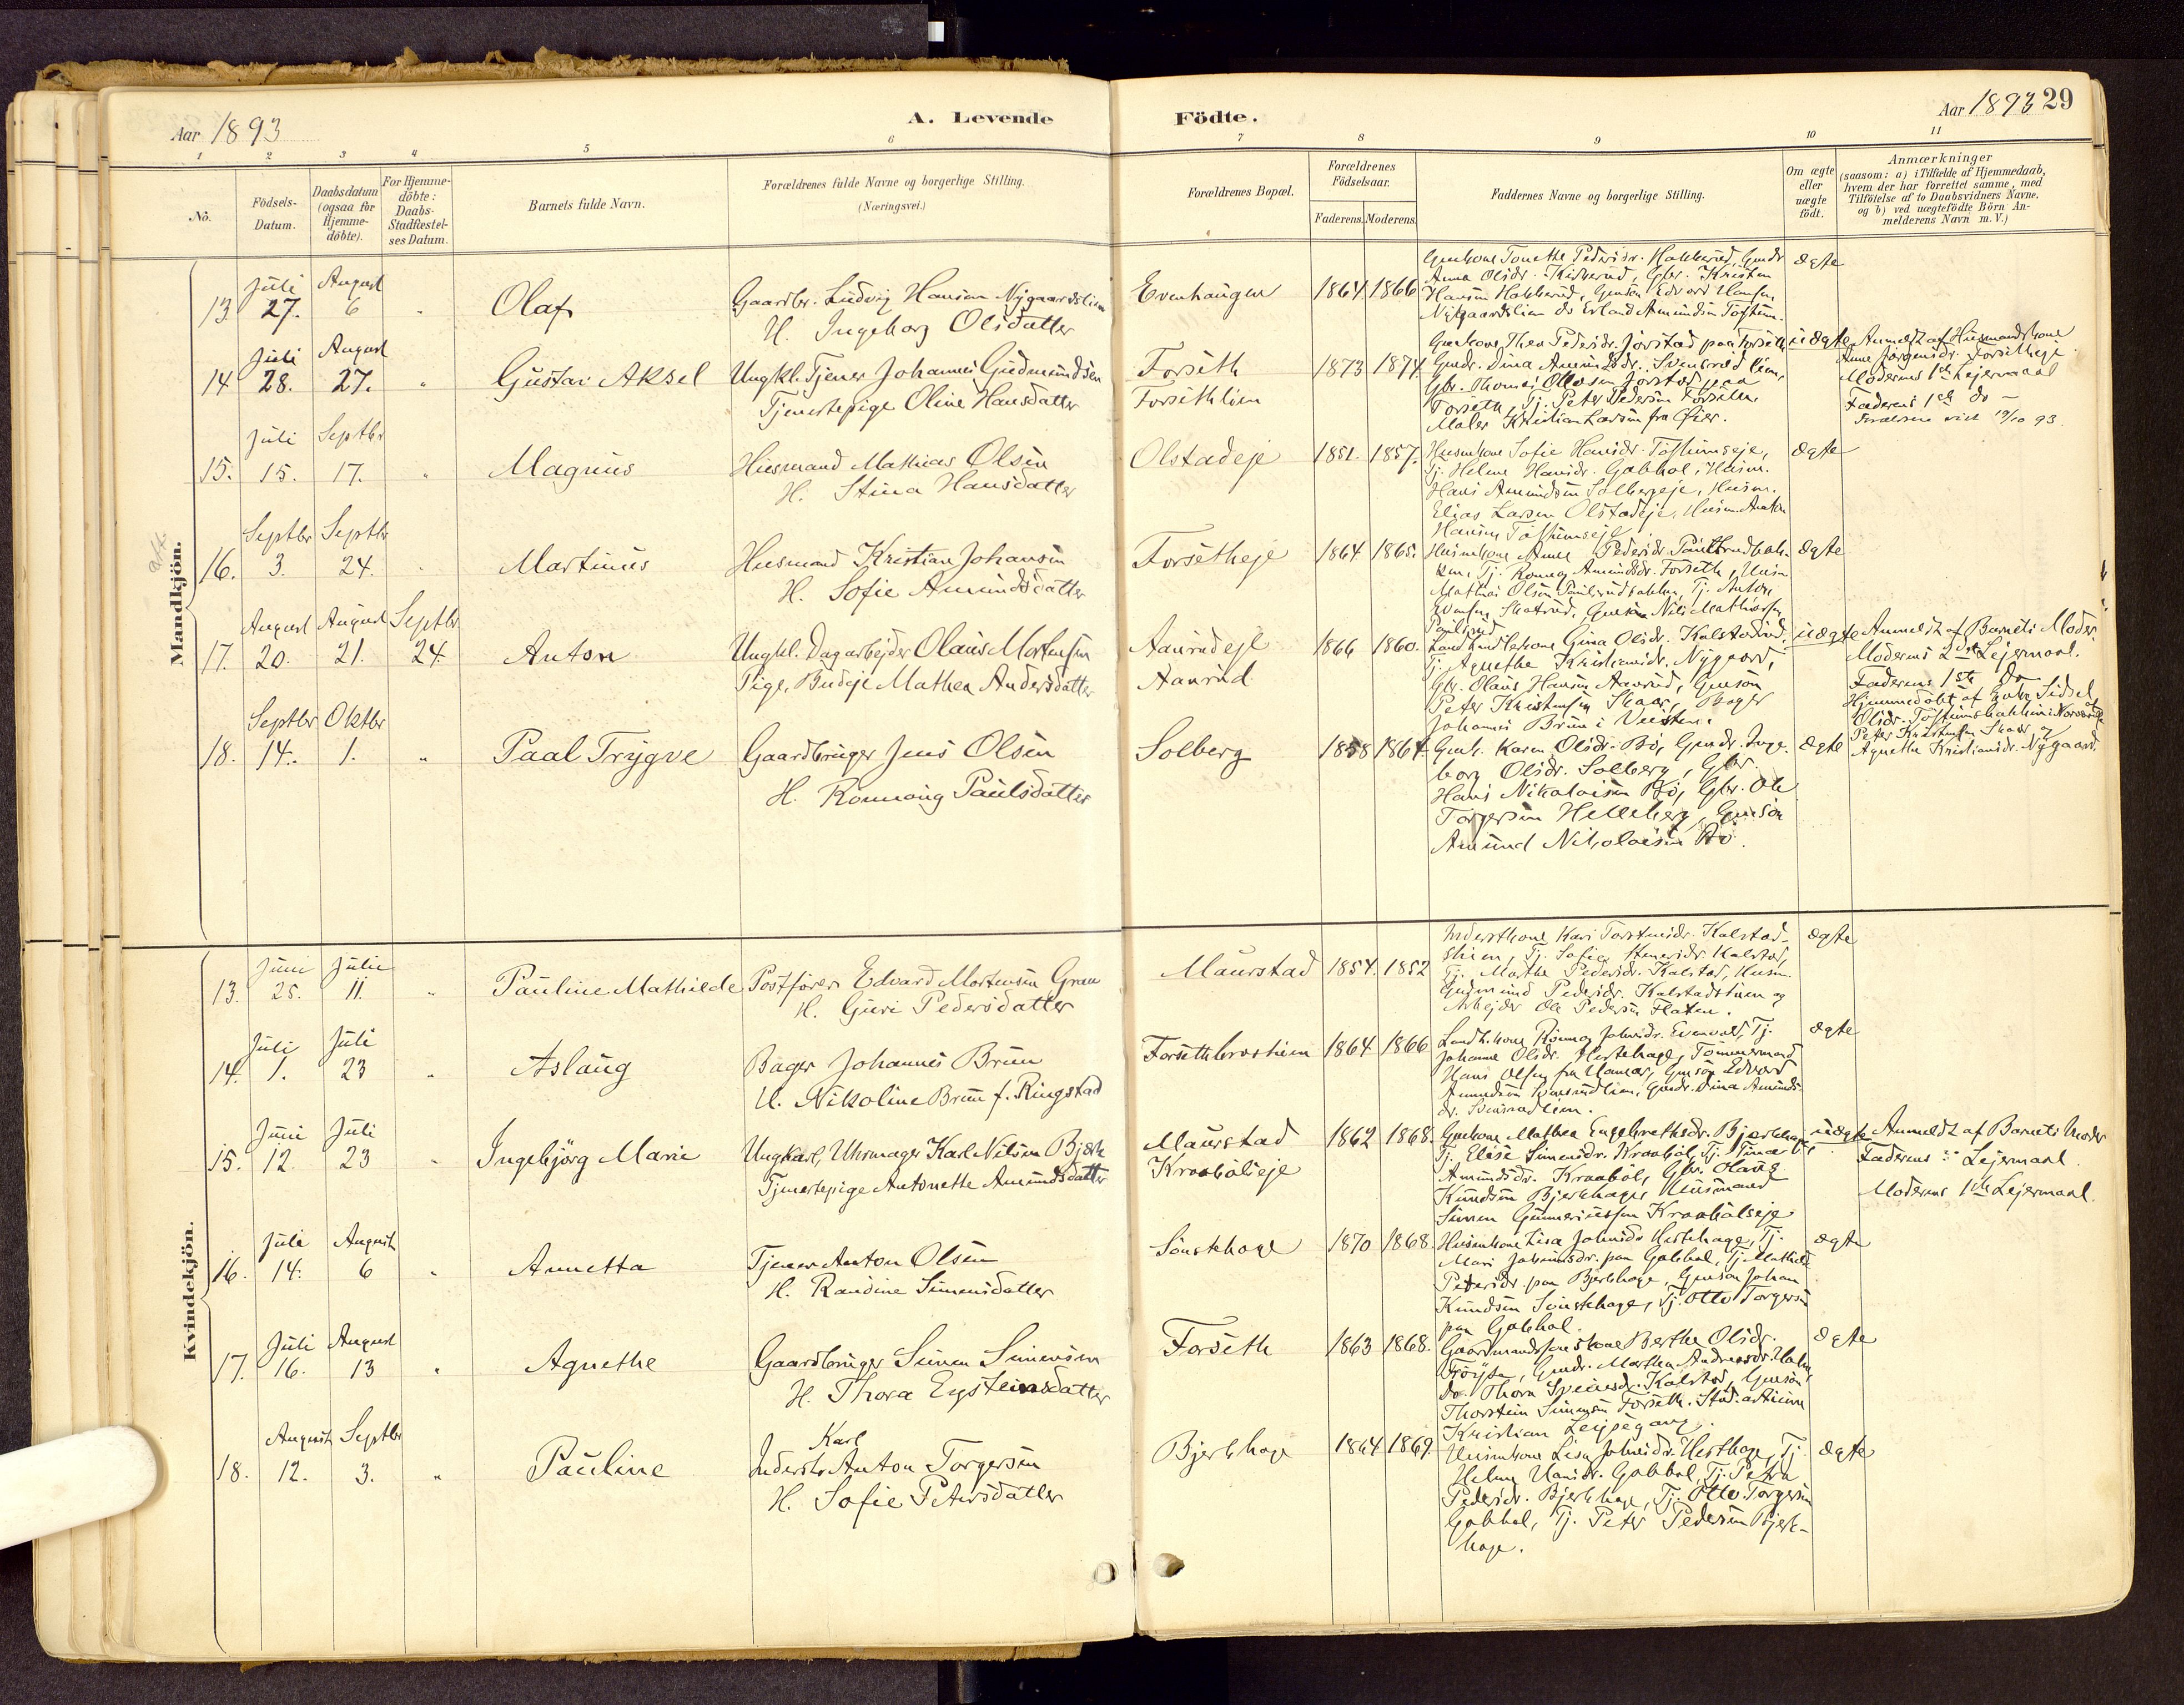 Aar 1893
A. Levende
Födte.
Aar 1893 29
1 2 3 4 5 6 7 8 9 10 11
No.
Födsels-
Datum.
Daabsdatum
(ogsaa for
Hjemme-
döbte).
For Hjemme-
döbte:
Daabs-
Stadfæstel-
ses Datum.
Barnets fulde Navn.
Forældrenes fulde Navne og borgerlige Stilling.
(Næringsvei.)
Forældrenes Bopæl.
Forældrenes
Födselsaar.
Faderens. Moderens.
Faddernes Navne og borgerlige Stilling.
Om ægte
eller
uægte
født.
Anmærkninger
(saasom: a) i Tilfælde af Hjemmedaab,
hvem der har forrettet samme, med
Tilföielse af to Daabsvidners Navne.
og b) ved uægtefödte Börn An-
melderens Navn m. V.)
Mandkjön.
13 Juli 27. August 6 " Olaf
Gaardbr. Ludvig Hansen Nygaardslien
H. Ingeborg Olsdatter
Evenhaugen 1864. 1866.
Anna Olsdr. Kirkerud, Gbr. Kristen
Hansen Hakkerud, Gmsön Edvard Hansen
Nygaardslien do Erland Amundsen Tofthum.
ægte
14 Juli 28. August 27. " Gustav Aksel
Ungkl. Tjener Johannes Gudmundsen
Tjenestepige Oline Hansdatter
Forseth
Forsethlien
1873 1874
Gmkone Thea Pedersdr. Jorstad paa Forseth
Gmdr. Dina Amundsdr. Svensrudlien,
Gbr. Thomas Olsen Jorstad paa
Forseth, Tj. Peter Pedersen Forseth,
Maler Kristian Larsen fra Öier.
uægte
Anmeldt af Husmandskone
Anne Jörgensdr. Forsethege.
Moderens 1ste Lejermaal
Faderens 1ste do –
15. Juli 15. Septbr 17. " Magnus
Husmand Mathias Olsen
H. Stina Hansdatter
Olstadeje 1851. 1857.
Husmkone Sofie Hansdr. Tofthumseje,
Tj. Helene Hansdr. Gabbol, Husm.
Hans Amundsen Solbergeje, Husm.
Elias Larsen Olstadeje, Husm. Anton
Hansen Tofthumseje.
ægte
16. Septbr 3. Septbr 24. " Martinus
Husmand Kristian Johansen
H. Sofie Amundsdatter
Forsetheje 1864 1865.
Husmkone Anne Pedersdr. Paulsrudbak-
ken, Tj. Ronnog Amundsdr. Forseth, Husm
Mathias Olsen Paulsrudbakken, Tj. Anton
Evensen Skatrud, Gmsön Nils Mathiassen
Paulsrud
ægte
17. August 20. August 21. Septbr 24. Anton
Ungkl. Dagarbejder Olaus Mortensen
Pige, Budeje Mathea Andersdatter
Aanrudeje
Aanrud
1866 1860.
Tj. Agnethe Kristiansdr. Nygaard,
Gbr. Olaus Hansen Aanrud, Gmsön
Peter Kristensen Skaar, Bager
Johannes Brun i Veisten.
uægte
Anmeldt af Barnets Moder.
Moderens 2det Lejermaal.
Faderens 1ste Do
Hjemmedöbt af Sidsel
Peter Kristensen Skaar og
Agnethe Kristiansdr. Nygaard.
18. Septbr 14. Oktbr 1. " Paal Trygve
Gaardbruger Jens Olsen
H. Ronnaug Paulsdatter
Solberg 1858 1864.
Gmk. Karen Olsdr. Bö, Gmdr. Inge-
borg Olsdr. Solberg, Gbr.
Hans Nikolaisen Bö, Gbr. Ole
Torgersen Helleberg, Gmsön
Amund Nikolaisen Bö.
ægte
Kvindekjön.
13. Juni 25. Juli 11. " Pauline Mathilde
Postförer Edvard Mortensen Gran
H. Guri Pedersdatter
Maurstad 1854. 1852
Inderstkone Kari Torstensdr. Kalstad-
Tj. Mathe Pedersdr. Kalstad, Husm.
Gudmund Kalstadstuen og
Arbejder Ole Pedersen Flaten.
ægte
14. Juli 1. Juli 23 " Aslaug
Bager Johannes Brun
H. Nikoline Brun f. Ringstad
1864 1866
Johanne Olsdr. Hestehage, Tömmermand
Hans Olsen fra Hamar, Gmsön Edvard
Amundsen Svensrudlien, Gmdr. Dina Amunds-
dr. Svensrudlien.
ægte
15. Juni 12. Juli 23 " Ingebjörg Marie
Ungkarl, Uhrmager Karl Nilsen Bjerke
Tjenestepige Antonette Amundsdatter
Maurstad
Kraabölseje
1862 1868.
Gmkone Mathea Engebrethsdr. Bjerkhage
Tj. Elise Simensdr. Kraaböl, Tj. Tina
Amundsdr. Kraaböl, Gbr. Olaus
Knudsen Bjerkhage, Husmand
Simen Gunneriussen Kraabölseje
uægte
Anmeldt af Barnets Moder
Faderens Lejermaal.
Moderens 1ste Lejermaal.
16. Juli 14. August 6 " Annetta
Tjener Anton Olsen
H. Randine Simensdatter
Sönstehage 1870 1868.
Husmkone Lisa Johnsdr. Hestehage, Tj.
Mari Johannesdr. paa Gabbol, Tj. Mathilde
Pedersdr. paa Bjerkhage, Gmsön Johan
Knudsen Sönstehage, Tj. Otto Torgersen
paa Gabbol.
ægte
17. Juli 16. August 13 " Agnethe
Gaardbruger Simen Simensen
H. Thora Eysteinsdatter
Forseth 1863 1868.
Gaardmandskone Berthe Olsdr.
Fröyse, Gmdr. Marthea Andreasdr. Holm,
do. Thora Kalstad, Gmsön
Thorstein Simensen Forseth. Stud. artium
Kristian
ægte
18. August 12. Septbr 3. " Pauline
Karl
Inderst Anton Torgersen
H. Sofie Petersdatter
Bjerkhage 1864 1869.
Husmkone Lisa Johnsdr. Hesthage, Tj.
Helene Hansdr. Gabbol, Tj. Petra
Pedersdr. Bjerkhage, Tj. Otto Torgersen
Gabbol, Tj. Peter Pedersen Bjerk-
hage.
ægte